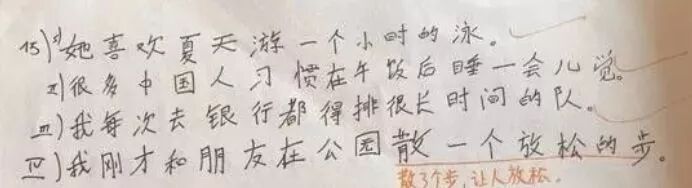 15) i) 她喜欢夏天游一个小时的泳。
ii) 很多中国人习惯在午饭后睡一会儿觉。
iii) 我每次去银行都得排很长时间的队。
iv) 我刚才和朋友在公园散一个放松的步。
散了个步,让人放松.